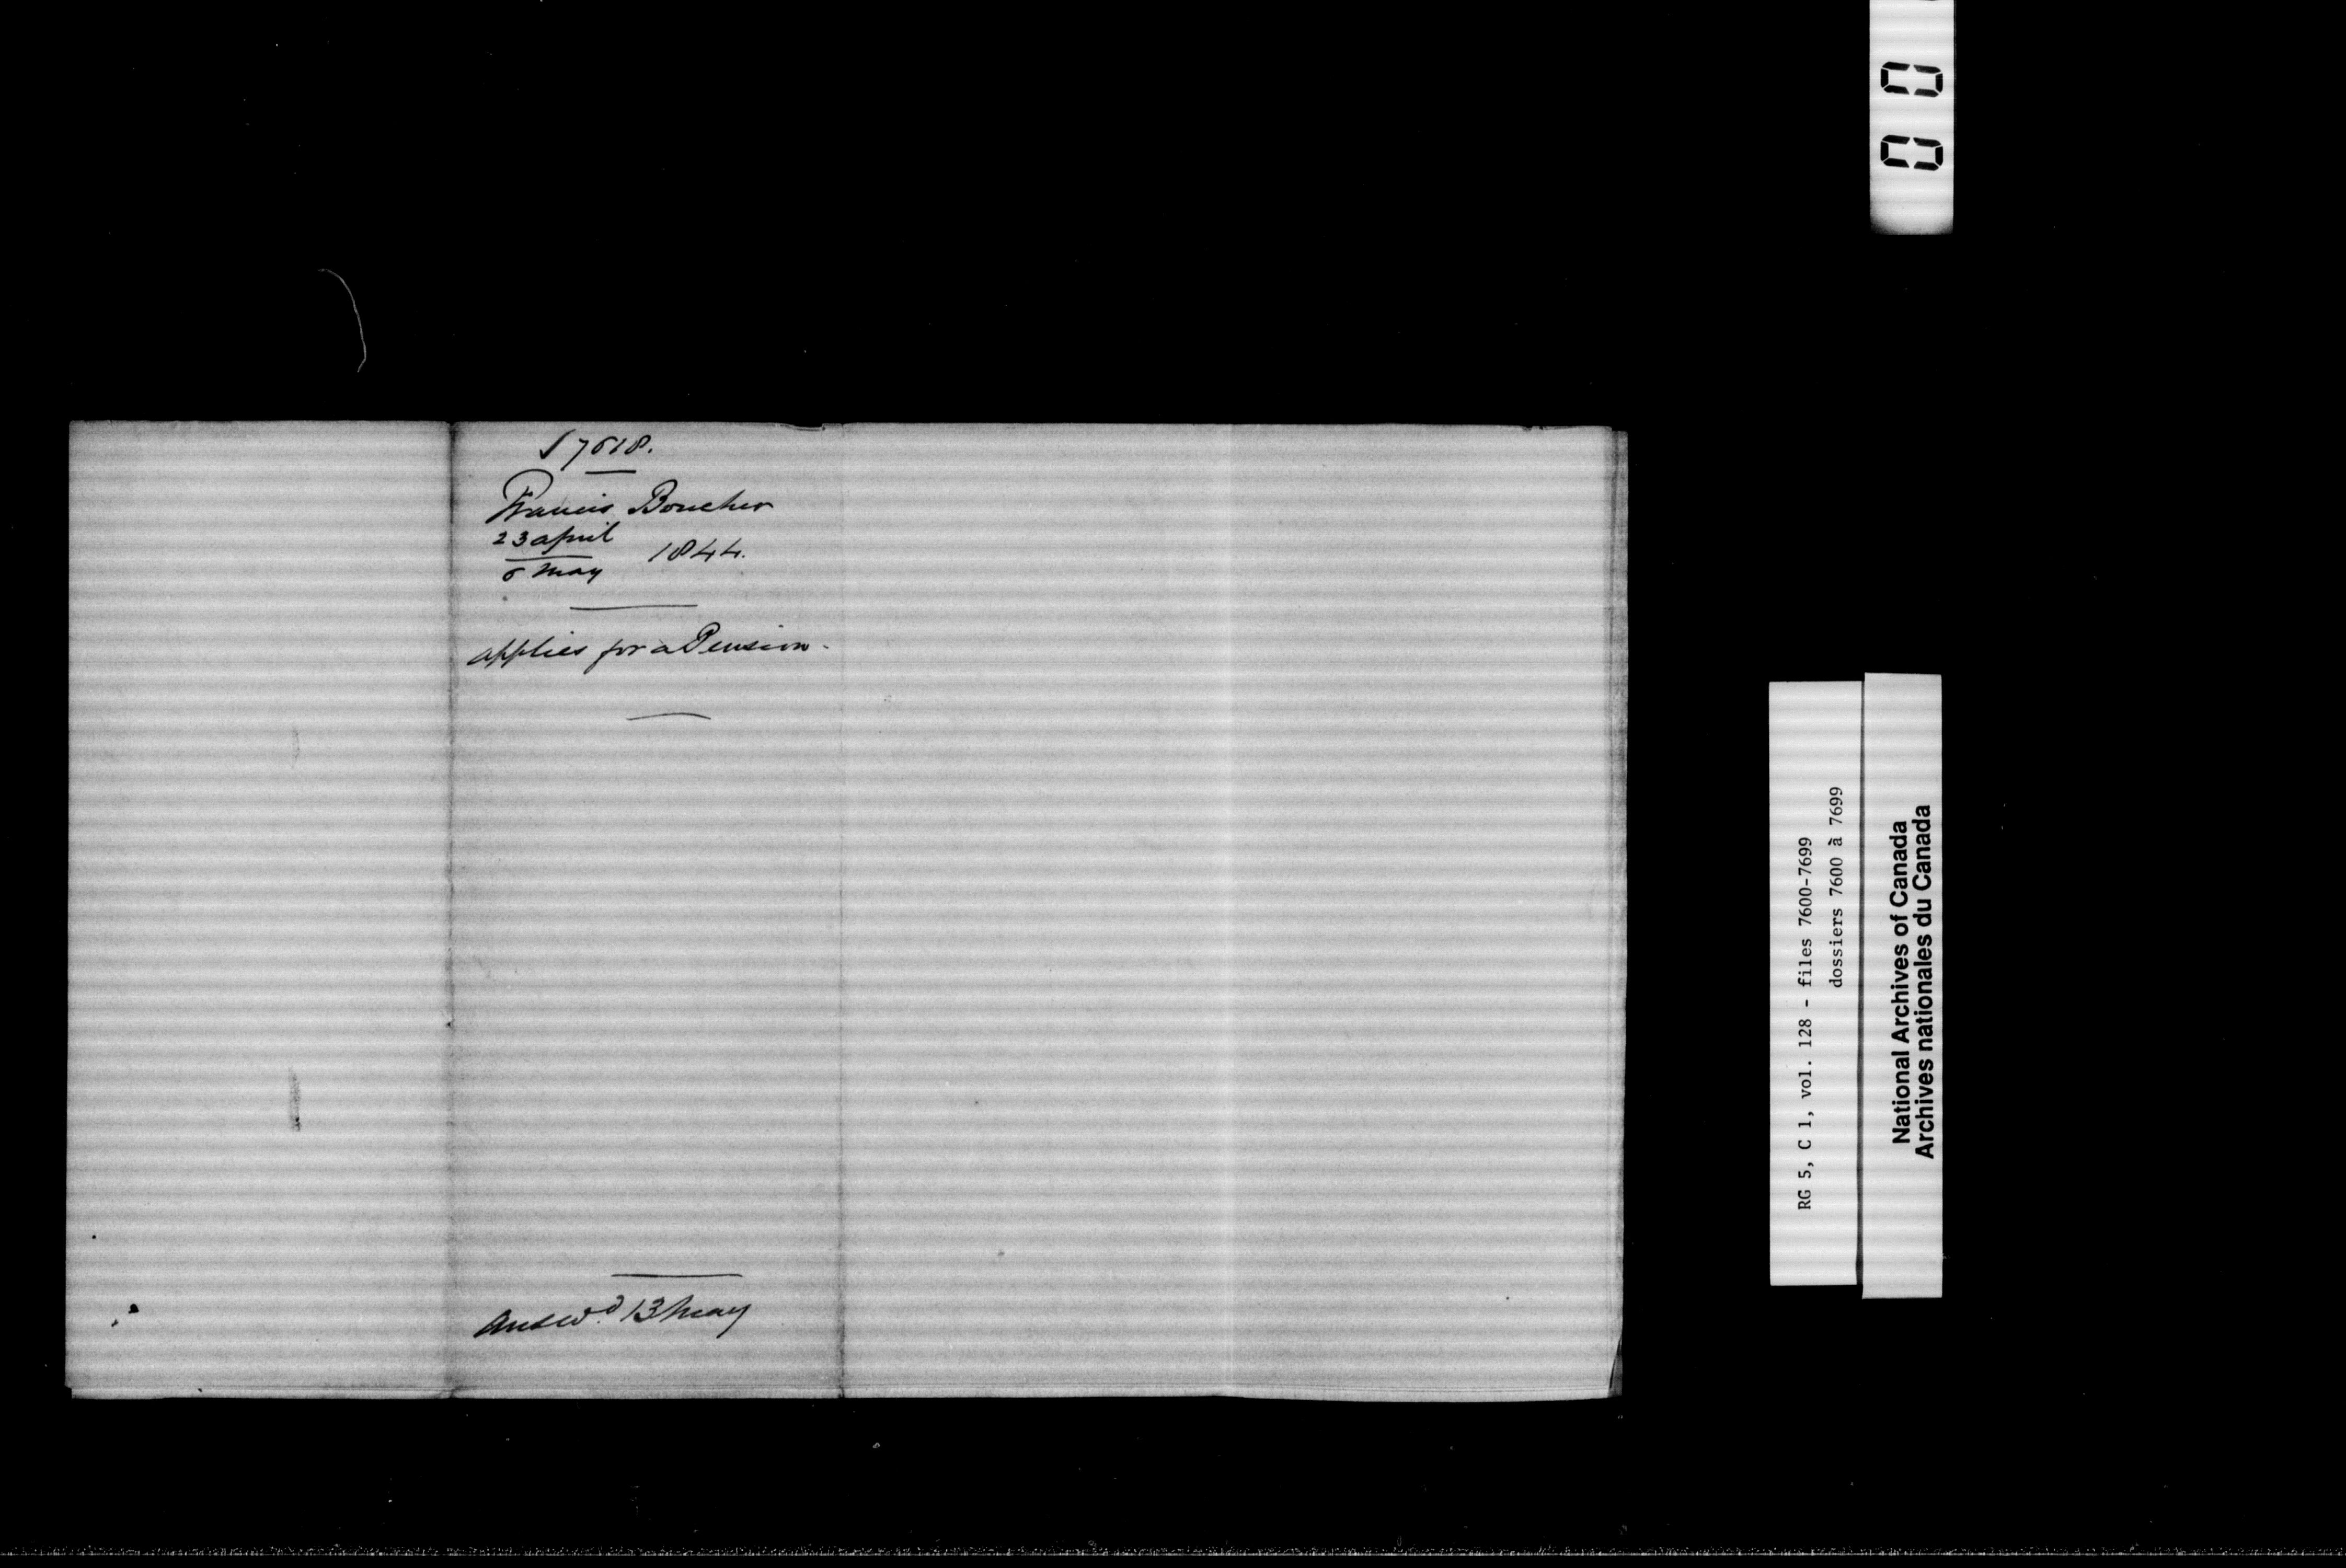 √ 7618.
Francis Boucher
23 april
6 May
1844.
applies for a Pension -
Answd. 13 May
0 0
RG 5, C 1, vol. 128 - files 7600-7699
dossiers 7600 à 7699
National Archives of Canada
Archives nationales du Canada